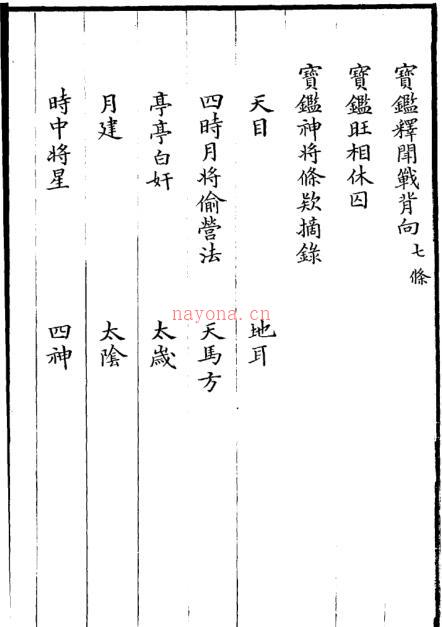 寶鑑釋聞戰背向七條
寶鑑旺相休囚
寶鑑神將條欵摘錄
天目 地耳
四時月將偷營法 天馬方
亭亭白奸 太歲
月建 太陰
時中將星 四神
nayona.cn